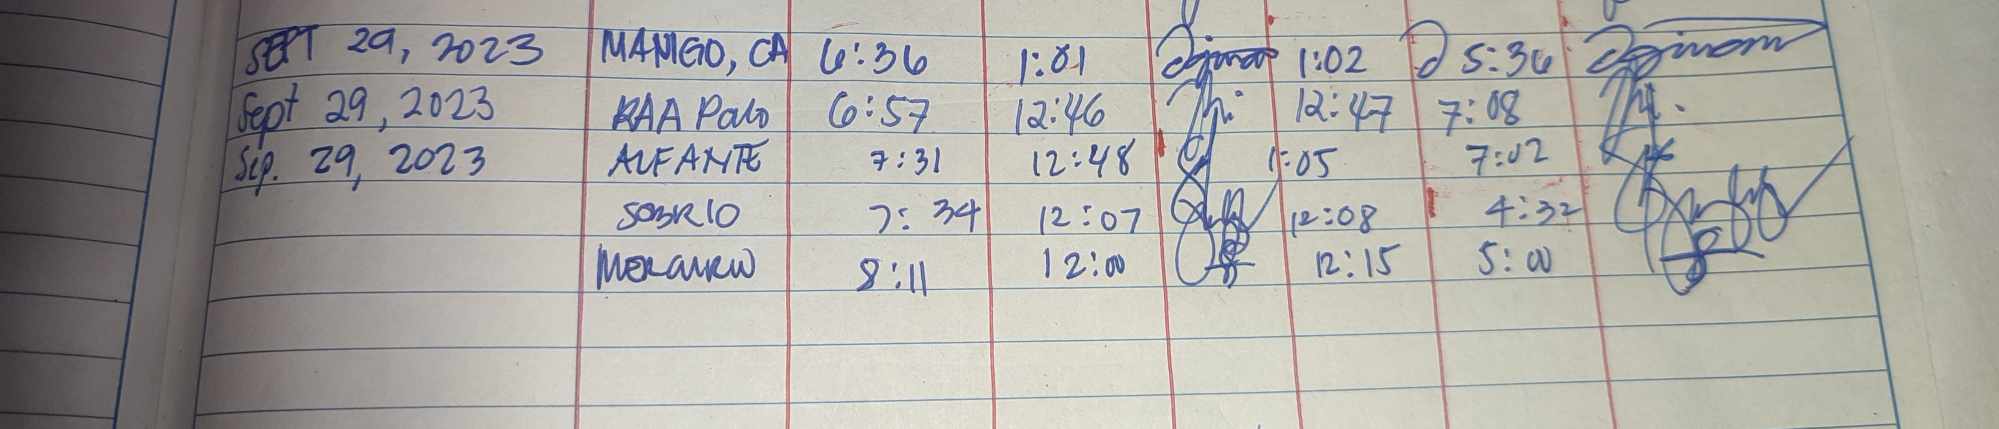 SEPT 29, 2023 MANGO, CA 6:36 1:01 1:02 5:36
Sept 29, 2023 RAA Palo 6:57 12:46 12:47 7:08
Sep. 29, 2023 ALFANTE 7:31 12:48 1:05 7:02
SOBRIO 7:34 12:07 12:08 4:32
8:11 12:00 12:15 5:00